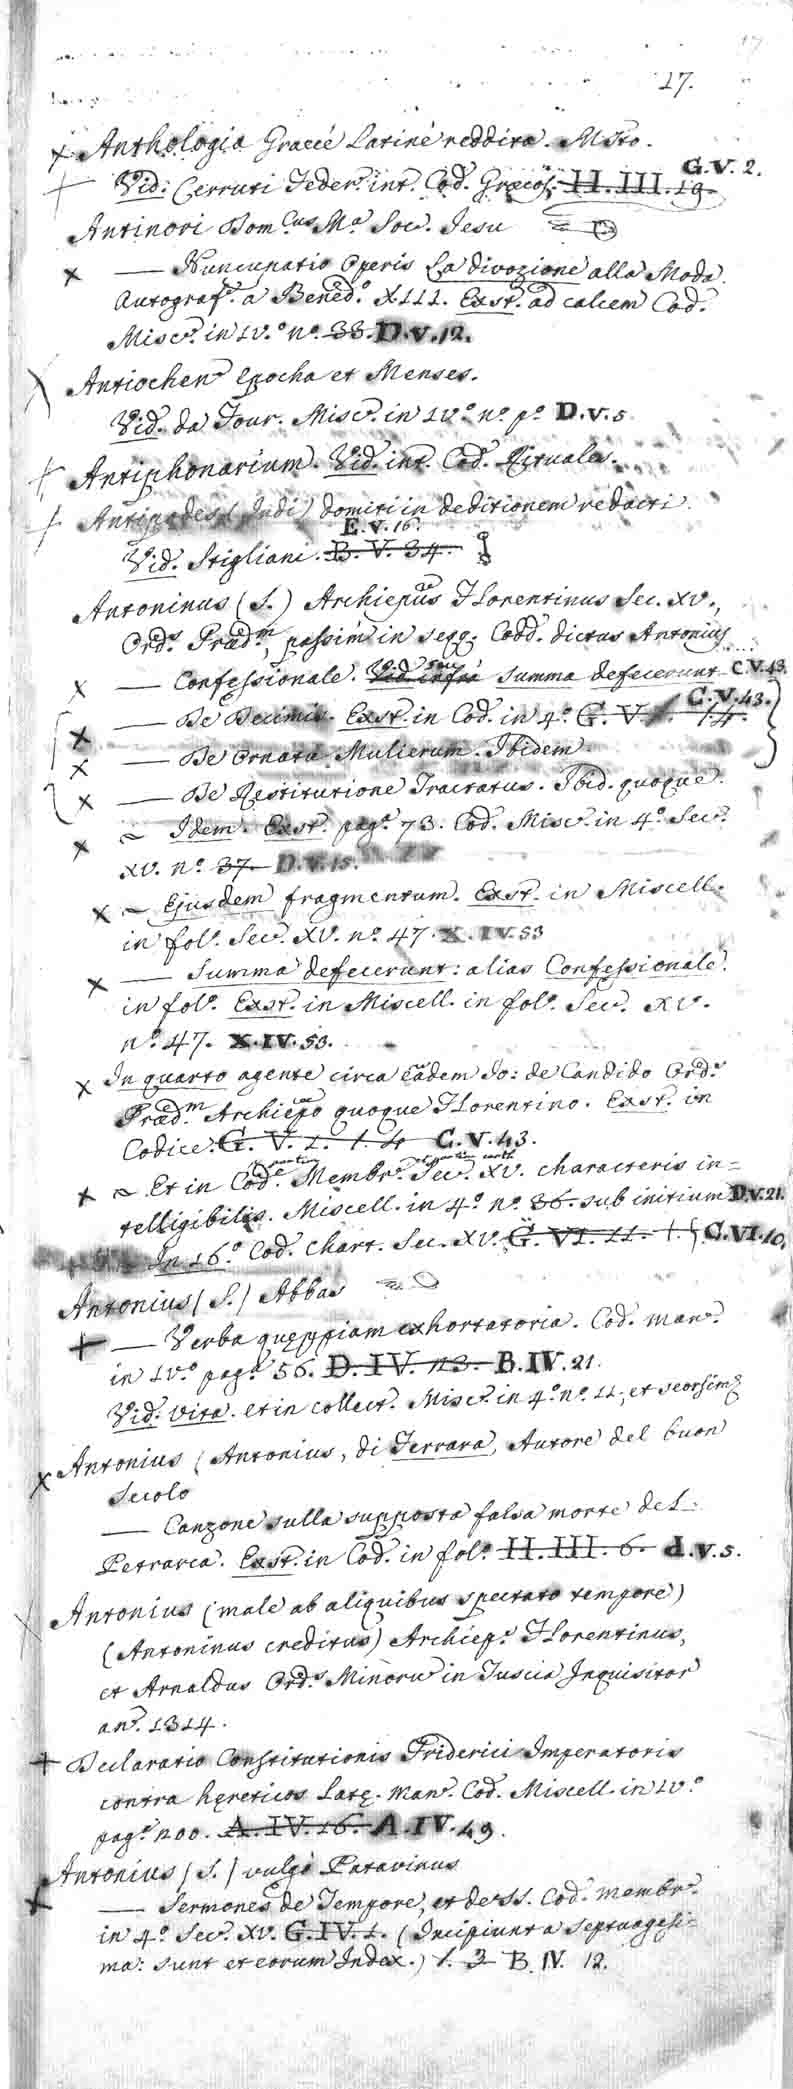 17.
Anthologia Graecè Latinè reddita. Msto.
G.V. 2.
Vid: Cerruti Feder. int. Cod. Græcos. II. III. 19.
Antinori Dom.cus M.a Soc. Jesu
— Nuncupatio Operis La divozione alla Moda.
Autograf.a a Bened.o XIII. Exst. ad calcem Cod.
Misc. in IV.o n.o 33. D.V.12.
Antiochen. Epocha et Menses.
Vid. da Tour. Misc. in IV.o n.o p.o D.V.5
Antiphonarium. Vid. int. Cod. Rituales.
Antipodes (Indi) domiti in deditionem redacti.
E.V.16.
Vid. Stigliani. B. V. 34.
Antoninus (S.) Archiepus Florentinus Sec. XV.,
Ord.s Præd.m, passim in seqq. Codd. dictus Antonius
— Confessionale. Vid. infra seu summa defecerunt C.V.43.
C.V.43.
— De Decimis. Exst. in Cod. in 4.o G. V. 14.
— De Ornatu Mulierum. Ibidem.
— De Restitutione Tractatus. Ibid. quoque.
~ Idem. Exst. pag.a 73. Cod. Misc. in 4.o Sec.
XV. n.o 37. D.V.15.
~ Ejusdem fragmentum. Exst. in Miscell.
in fol.o Sec. XV. n.o 47. X.IV.53
— Summa defecerunt: alias Confessionale.
in fol.o Exst. in Miscell. in fol.o Sec. XV.
n.o 47. X.IV.53.
In quarto agente circa eadem Jo: de Candido Ord.s
Præd.m Archiepo quoque Florentino. Exst. in
Codice. G. V. 1. 1. 4 C.V.43.
~ Et in Cod.e Membr. Sec. XV. characteris in=
telligibilis. Miscell. in 4.o n.o 36. sub initium D.V.21.
In 16.o Cod. chart. Sec. XV. G. VI. 11. 1. C.VI.10.
Antonius (S.) Abbas
— Verba quæppiam exhortatoria. Cod. man.
in IV.o pag.a 56. D. IV. 23. B.IV.21.
Vid. vita. et in collect. Misc. in 4.o n.o 11., et seorsim
Antonius (Antonius, di Ferrara, Autore del buon
Secolo
— Canzone sulla supposta falsa morte del
Petrarca. Exst. in Cod. in fol.o II. III. 6. d.V.5.
Antonius (male ab aliquibus spectato tempore)
(Antoninus creditus) Archiep.s Florentinus,
et Arnaldus Ord.s Minoru in Tuscia Inquisitor
an. 1314.
Declaratio Constitutionis Friderici Imperatoris
contra hęreticos latę. man. Cod. Miscell. in IV.o
pag.a 200. A. IV. 16. A.IV.49.
Antonius (S.) vulgò Patavinus
— Sermones de Tempore, et de SS. Cod. membr.
in 4.o Sec. XV. G.IV.1. (Incipiunt a septuagesi=
ma: sunt et eorum Index.) 1. 3 B. IV. 12.